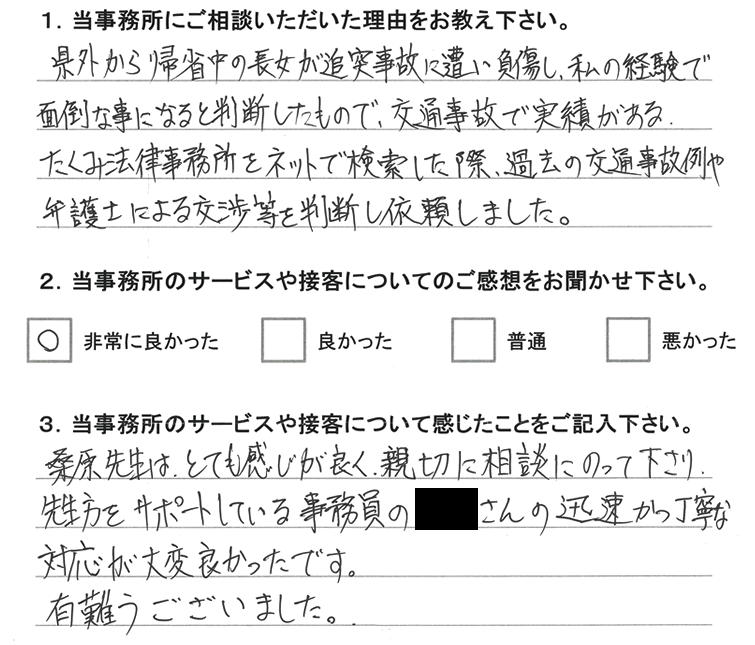 １．当事務所にご相談いただいた理由をお教え下さい。
県外から帰省中の長女が追突事故に遭い負傷し、私の経験で
面倒な事になると判断したもので、交通事故で実績がある.
たくみ法律事務所をネットで検索した際、過去の交通事故例や
弁護士による交渉等を判断し依頼しました。
２．当事務所のサービスや接客についてのご感想をお聞かせ下さい。
○ 非常に良かった 良かった 普通 悪かった
３．当事務所のサービスや接客について感じたことをご記入下さい。
桑原先生は、とても感じが良く、親切に相談にのって下さり.
先生方をサポートしている事務員の さんの迅速かつ丁寧な
対応が大変良かったです。
有難うございました。